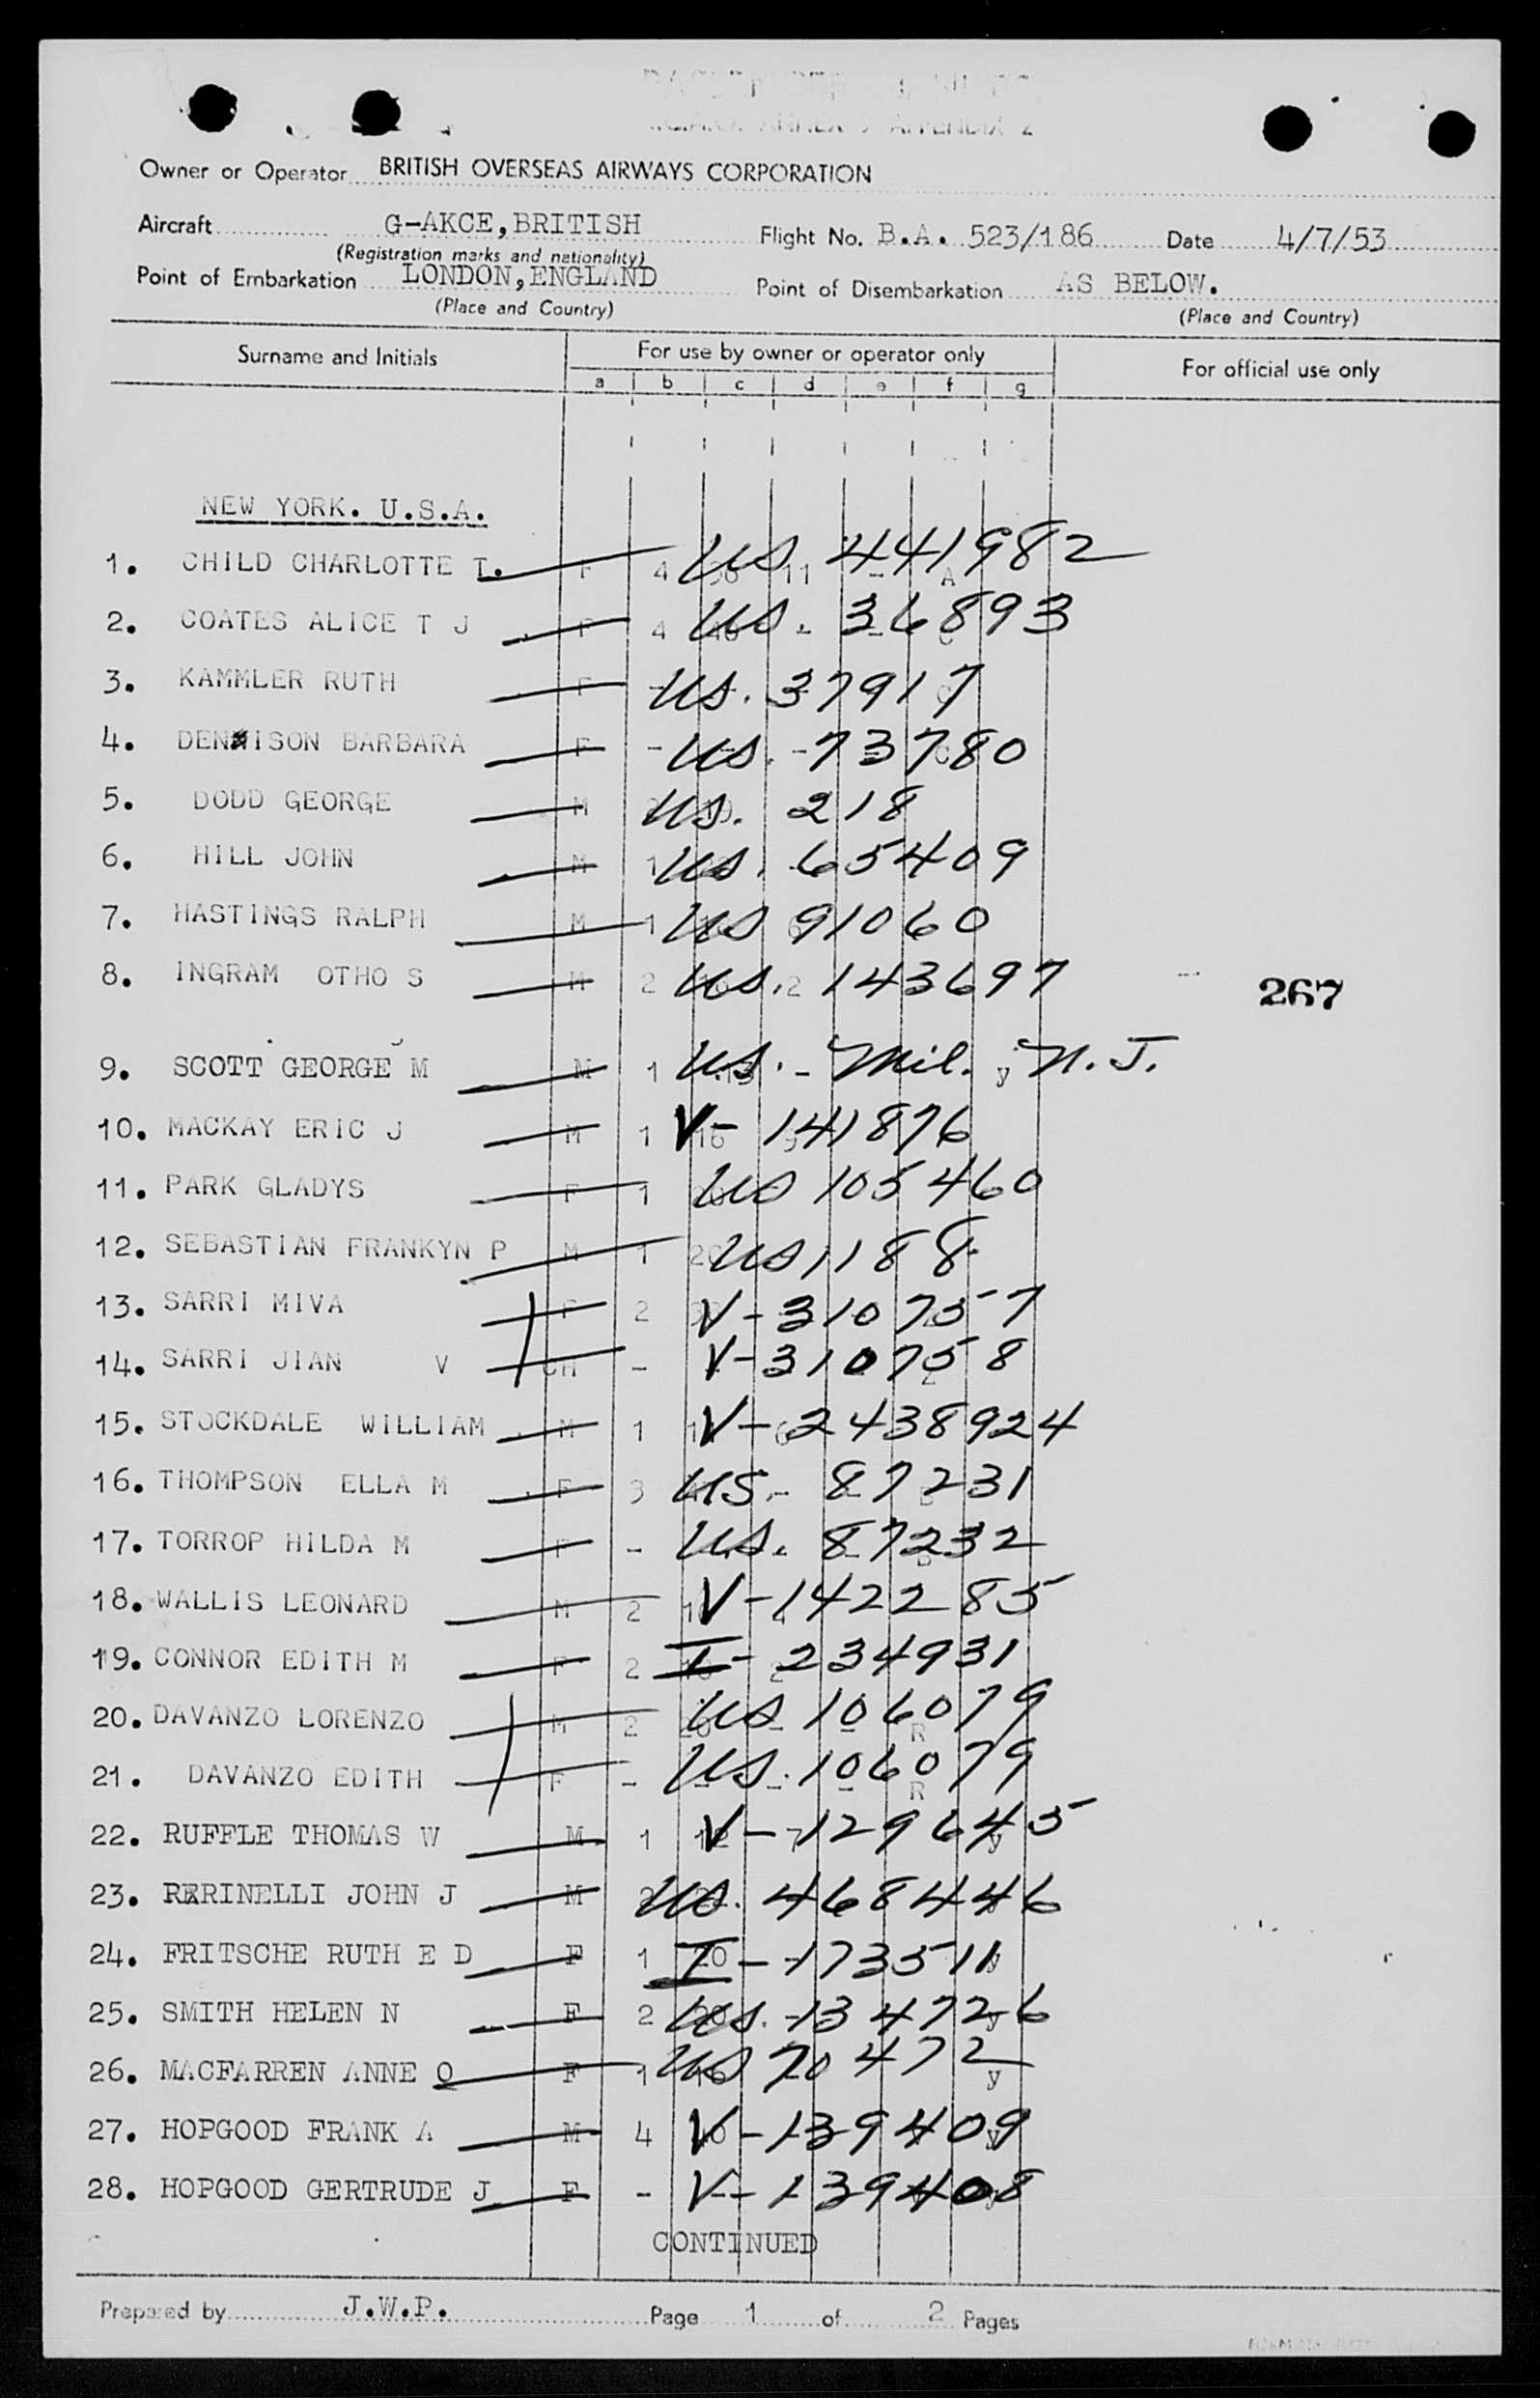 I.C.A.O. ANNEX 9 APPENDIX 2
Owner or Operator BRITISH OVERSEAS AIRWAYS CORPORATION
Aircraft G-AKCE, BRITISH Flight No. B.A. 523/186 Date 4/7/53
(Registration marks and nationality)
Point of Embarkation LONDON, ENGLAND Point of Disembarkation AS BELOW.
(Place and Country) (Place and Country)
Surname and Initials For use by owner or operator only For official use only
a b c d e f g
NEW YORK. U.S.A.
1. CHILD CHARLOTTE T. F 4 11 - A US. 441982
2. COATES ALICE T J F 4 - - US. 36893
3. KAMMLER RUTH F US. 37917
4. DENNISON BARBARA F - US. 73780
5. DODD GEORGE M US. 218
6. HILL JOHN M 1 US. 65409
7. HASTINGS RALPH M 1 US 91060
8. INGRAM OTHO S M 2 2 US. 143697
267
9. SCOTT GEORGE M M 1 - y US. Mil. N. J.
10. MACKAY ERIC J M 1 16 V- 141876
11. PARK GLADYS F 1 US 105460
12. SEBASTIAN FRANKYN P M 1 20 US 1188
13. SARRI MIVA F 2 V- 3107357
14. SARRI JIAN V CH - V- 310758
15. STOCKDALE WILLIAM M 1 V- 2438924
16. THOMPSON ELLA M F 3 US. 87231
17. TORROP HILDA M F - US. 87232
18. WALLIS LEONARD M 2 V- 1422285
19. CONNOR EDITH M F 2 I- 234931
20. DAVANZO LORENZO M 2 20 - - R US 106079
21. DAVANZO EDITH F - - - - R US. 106079
22. RUFFLE THOMAS W M 1 y V- 129645
23. RERINELLI JOHN J M US. 468446
24. FRITSCHE RUTH E D F 1 20 y I- 173511
25. SMITH HELEN N F 2 y US. 134726
26. MACFARREN ANNE O F 1 y US 70472
27. HOPGOOD FRANK A M 4 40 y V- 139409
28. HOPGOOD GERTRUDE J F - V- 139408
CONTINUED
Prepared by J.W.P. Page 1 of 2 Pages